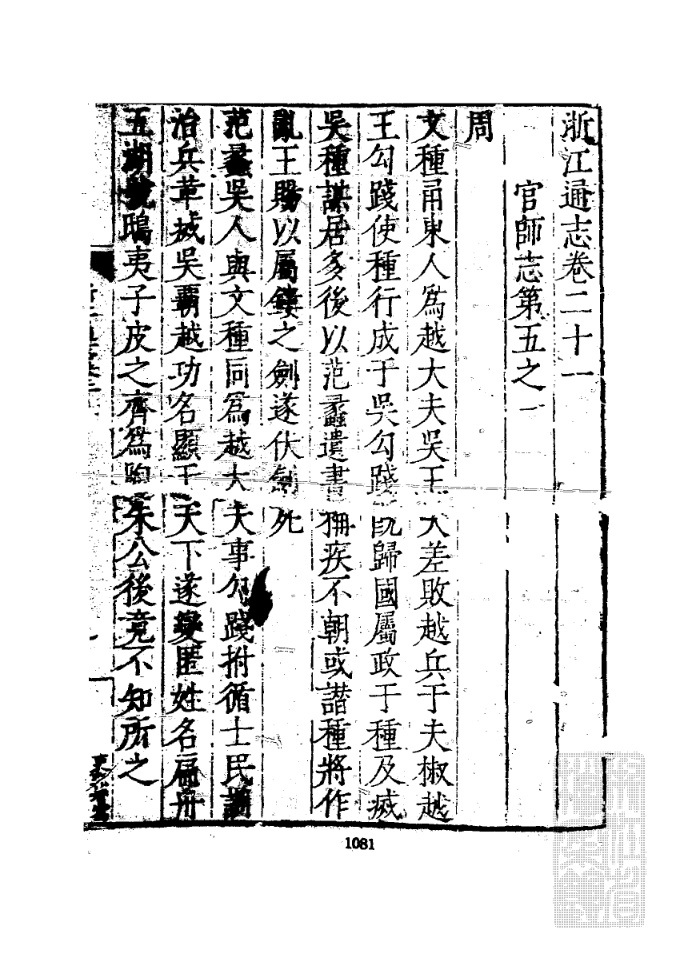 浙江通志卷二十一
官師志第五之一
周
文種甬東人爲越大夫吳王夫差敗越兵于夫椒越
王勾踐使種行成于吳勾踐旣歸國屬政于種及滅
吳種謀居多後以范蠡遺書稱疾不朝或譖種將作
亂王賜以屬鏤之劍遂伏劍死
范蠡吳人與文種同爲越大夫事勾踐拊循士民
治兵革滅吳覇越功名顯于天下遂變匿姓名扁舟
五湖號鴟夷子皮之齊爲陶朱公後竟不知所之
1081